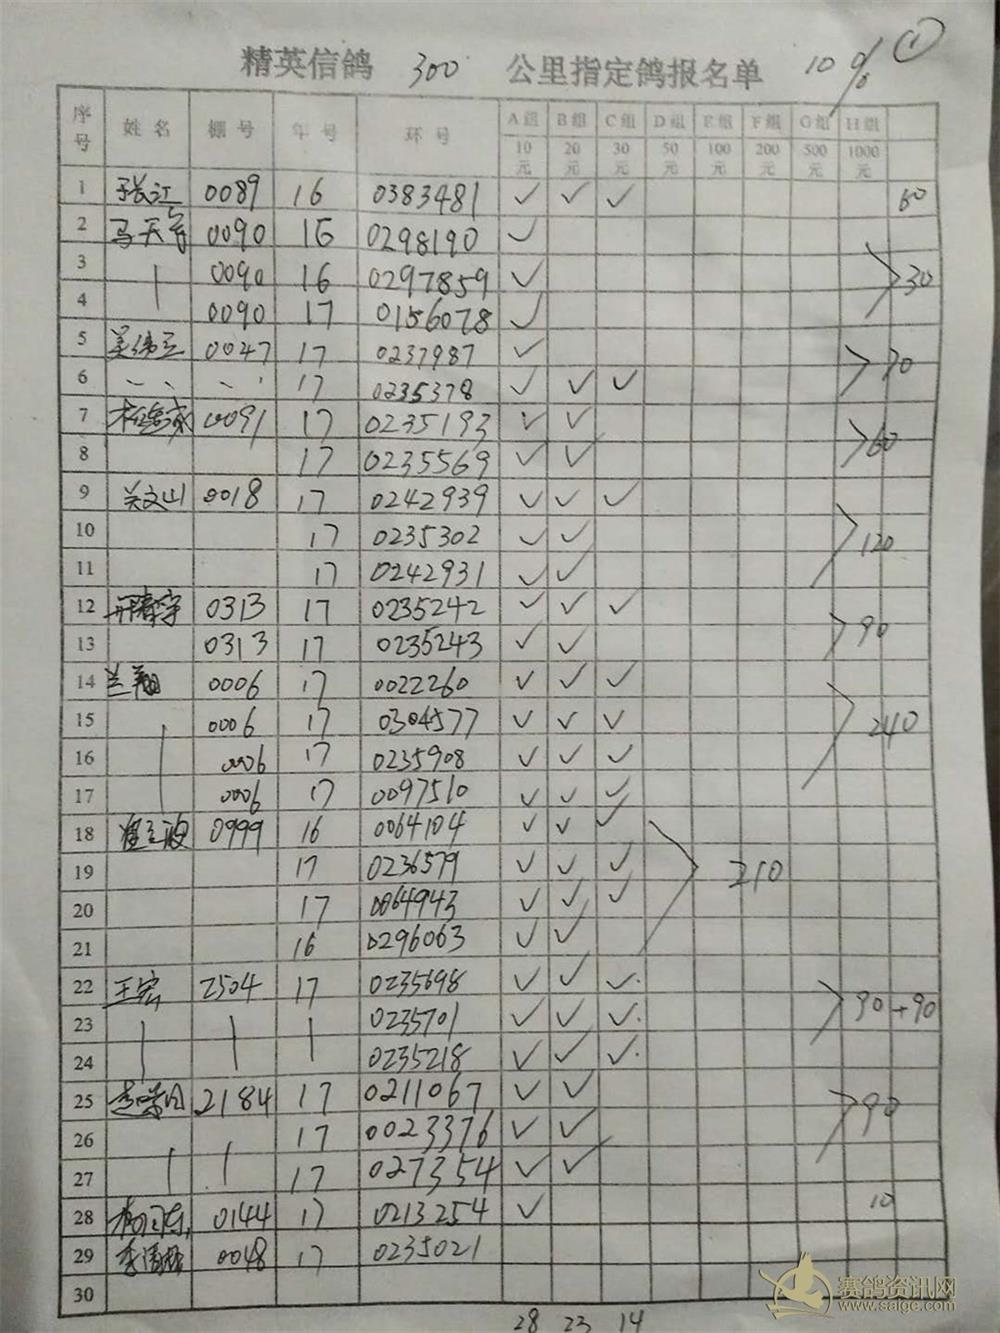 精英信鸽 300 公里指定鸽报名单 10% ①
序号 姓名 棚号 年号 环号 A组 10元 B组 20元 C组 30元 D组 50元 E组 100元 F组 200元 G组 500元 H组 1000元
1 于长江 0089 16 0383481 ✓ ✓ ✓ 60
2 0090 16 0298190 ✓
3 0090 16 0297859 ✓ 30
4 0090 17 0156078 ✓
5 0047 17 0237987 ✓
6 17 0235378 ✓ ✓ ✓ 70
7 0091 17 0235193 ✓ ✓
8 17 0235569 ✓ ✓ 60
9 关文山 0018 17 0242939 ✓ ✓ ✓
10 17 0235302 ✓ ✓ 120
11 17 0242931 ✓ ✓
12 0313 17 0235242 ✓ ✓ ✓
13 0313 17 0235243 ✓ ✓ 90
14 兰翔 0006 17 0022260 ✓ ✓ ✓
15 0006 17 0304577 ✓ ✓ ✓ 240
16 0006 17 0235908 ✓ ✓ ✓
17 0006 17 0097510 ✓ ✓ ✓
18 0999 16 0064104 ✓ ✓ ✓
19 17 0236579 ✓ ✓ ✓ 210
20 17 0064943 ✓ ✓ ✓
21 16 0296063 ✓ ✓
22 王宏 2504 17 0235698 ✓ ✓ ✓
23 0235701 ✓ ✓ ✓ 90+90
24 0235218 ✓ ✓ ✓
25 2184 17 0211067 ✓ ✓
26 17 0023376 ✓ ✓ 90
27 17 027354 ✓ ✓
28 0144 17 0213254 ✓ 10
29 0048 17 0235021
30
28 23 14
赛鸽资讯网
www.saige.com